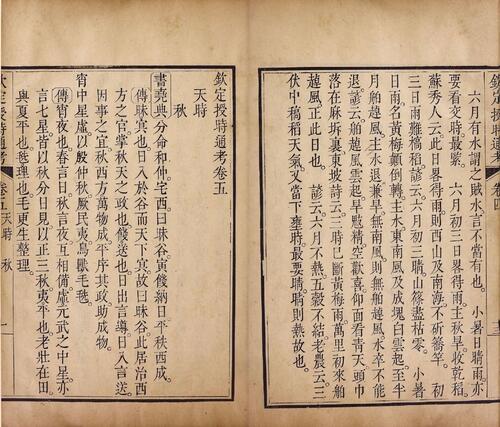 六月有水謂之賊水言不當有也。 小暑日晴雨亦
要看交時最緊。 六月初三日畧得雨主秋旱收乾稻
蘇秀人云此日畧得雨則西山及南海不斫篰竿。 初
三日雨難槁稻諺云六月初三晴山篠盡枯零。 小暑
日雨名黃梅顛倒轉主水東南風及成塊白雲起至半
月舶趠風主水退兼旱無南風則無舶趠風水卒不能
退諺云舶趠風雲起旱魃精空歡喜仰面看靑天頭巾
落在麻坼裏東坡詩云三時已斷黃梅雨萬里初來舶
趠風正此日也。 諺云六月不熱五穀不結老農云三
伏中槁稻天氣又當下壅時最要晴晴則熱故也。
欽定授時通考卷五
天時
秋
書堯典分命和仲宅西曰昧谷寅餞納日平秩西成。
傳昧冥也日入於谷而天下冥故曰昧谷此居治西
方之官掌秋天之政也餞送也日出言導日入言送
因事之宜秋西方萬物成平序其政助成物。
宵中星虛以殷仲秋厥民夷鳥獸毛毨。
傳宵夜也春言日秋言夜互相備虛元武之中星亦
言七星皆以秋分日見以正三秋夷平也老壯在田
與夏平也毨理也毛更生整理。
欽定授時通考 卷五天時 秋 一